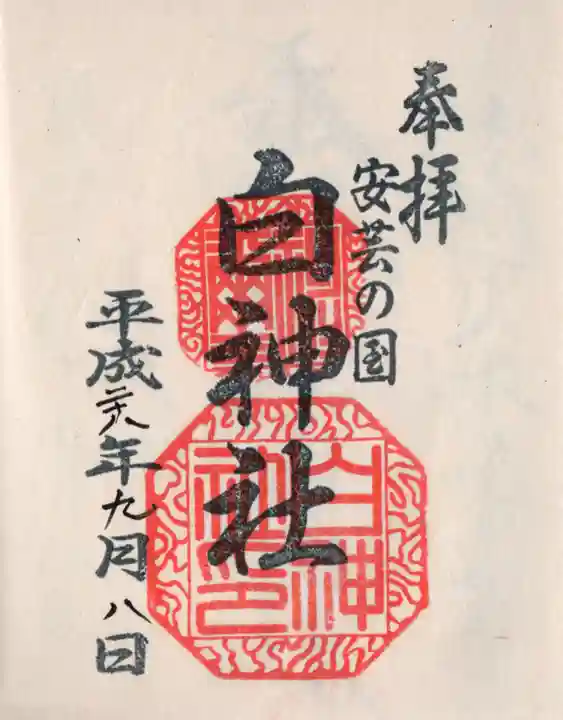 奉拝
安芸の国
白神社
白神
社印
平成二十八年九月八日